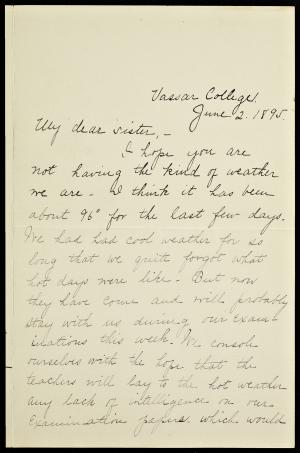 Vassar College.
June 2. 1895.
My dear sister,-
I hope you are
not having the kind of weather
we are - I think it has been
about 96° for the last few days.
We had had cool weather for so
long that we quite forgot what
hot days were like. But now
they have come and will probably
stay with us during our exam-
inations this week. We console
ourselves with the hope that the
teachers will lay to the hot weather
any lack of intelligence on our
examination papers which would